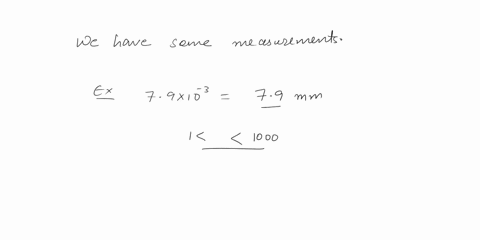 We have some measurements.
Ex 7.9×10⁻³ = 7.9 mm
1< < 1000